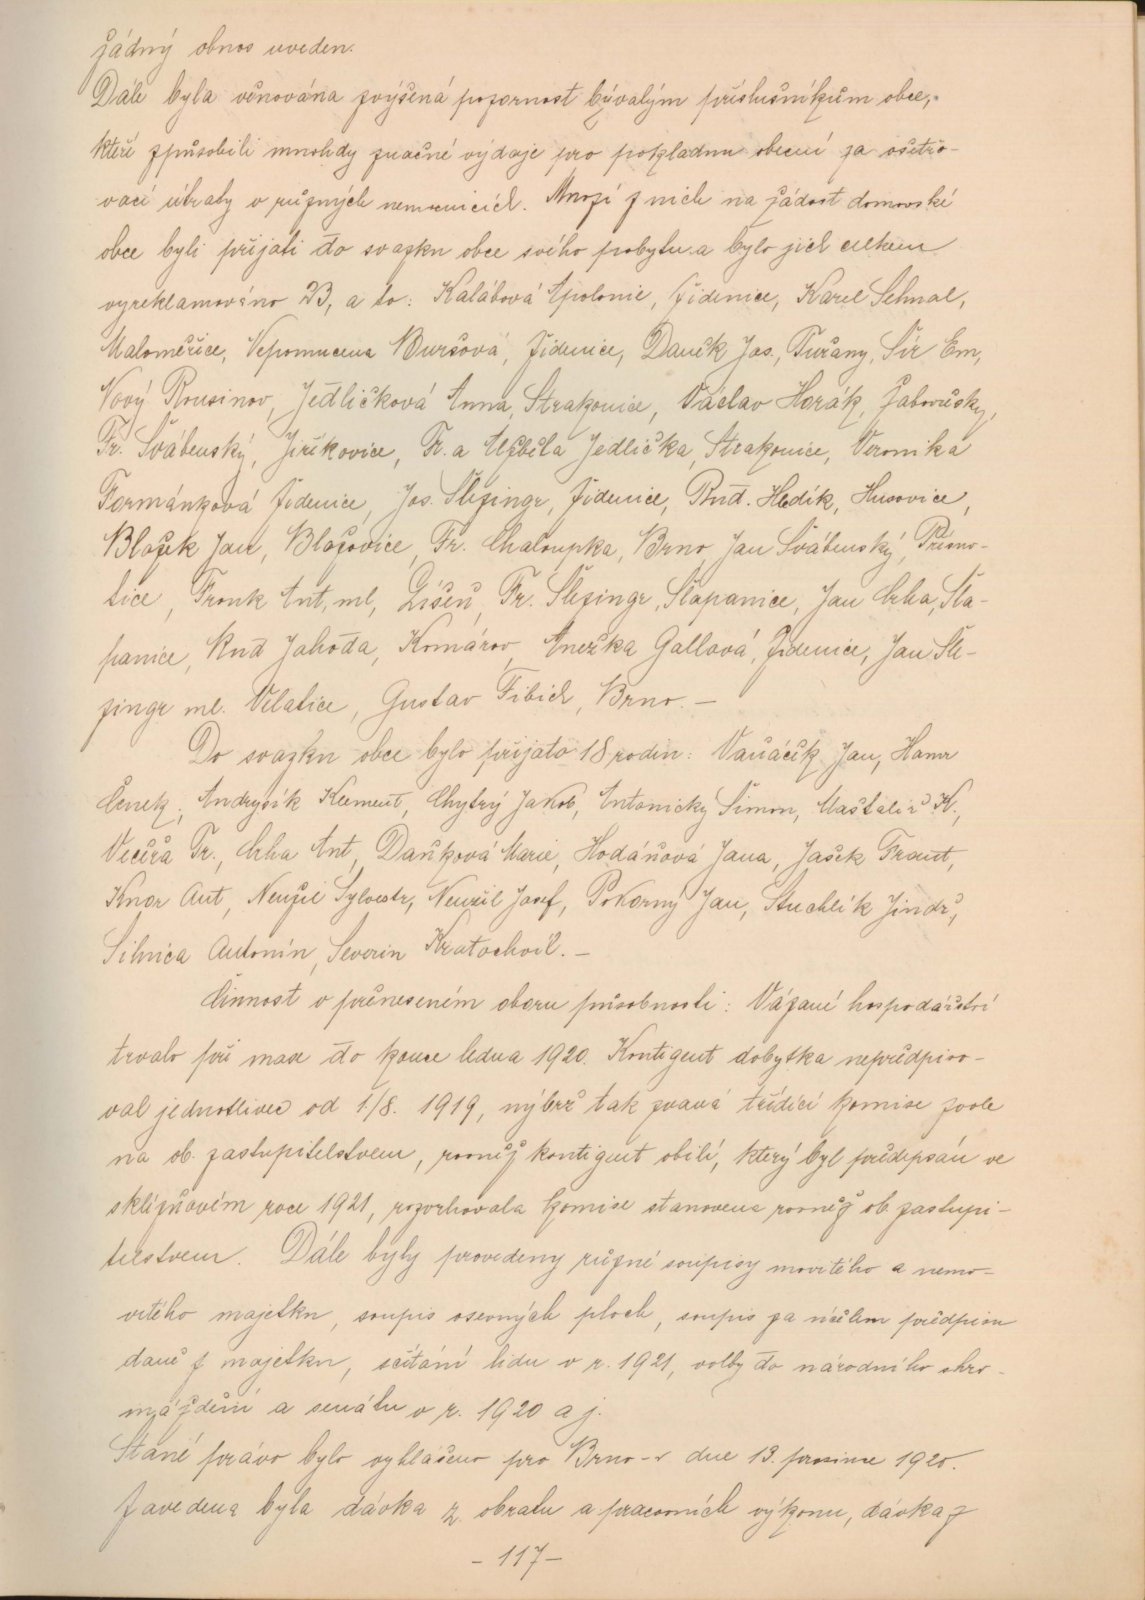 žádný obnos uveden.
Dále byla věnována zvýšená pozornost bývalým příslušníkům obce,
kteří způsobili mnohdy značné výdaje pro pokladnu obecní za ošetřo-
vací útraty v různých nemocnicích. Mnozí z nich na žádost domovské
obce byli přijati do svazku obce svého pobytu a bylo jich celkem
vyreklamováno 23, a to: Kalábová Apolonie, Židenice, Karel Sehnal,
Maloměřice, Nepomucena Buršová, Židenice, Daněk Jos., Tuřany, Šír Em,
Nový Rousinov, Jedličková Anna, Strakonice, Václav Horák, Žabovřesky,
Fr. Švábenský, Jiříkovice, Fr. a Alžběta Jedlička, Strakonice, Veronika
Formánková Židenice, Jos. Šlezingr, Židenice, Rud. Hedík, Husovice,
Blažek Jan, Blažovice, Fr. Chaloupka, Brno, Jan Švábenský, Prosmo-
tice, Fronk Ant. ml, Líšeň, Fr. Šlezingr, Šlapanice, Jan Crha, Šla-
panice, Rud Jahoda, Komárov, Anežka Gallová, Židenice, Jan Šle-
zingr ml. Velatice, Gustav Fibich, Brno. —
Do svazku obce bylo přijato 18 rodin: Vaňáček Jan, Hamr
Čenek, Andrysík Klement, Chytrý Jakob, Antonický Šimon, Maštalíř K.,
Večeřa Fr., Crha Ant, Daňková Marie, Hodáňová Jana, Jašek Frant,
Knor Ant, Neužil Sylvestr, Neužil Josef, Pokorný Jan, Stuchlík Jindř,
Silnica Antonín, Severin Kratochvíl. —
Činnost v přeneseném oboru působnosti: Vázané hospodářství
trvalo při mase do konce ledna 1920. Kontigent dobytka nepředpiso-
val jednotlivec od 1./8. 1919, nýbrž tak zvaná třídící komise zvole
na ob. zastupitelstvem, rovněž kontigent obilí, který byl předepsán ve
sklizňovém roce 1921, rozvrhovala komise stanovena rovněž ob zastupi-
telstvem. Dále byly provedeny různé soupisy movitého a nemo-
vitého majetku, soupis osevných ploch, soupis za účelem předpisu
daně z majetku, sčítání lidu v r. 1921, volby do národního shro-
máždění a senátu v r. 1920 a j.
Stané právo bylo vyhlášeno pro Brno-v dne 13. prosince 1920.
Zavedena byla dávka z obratu a pracovních výkonu, dávka z
- 117 -